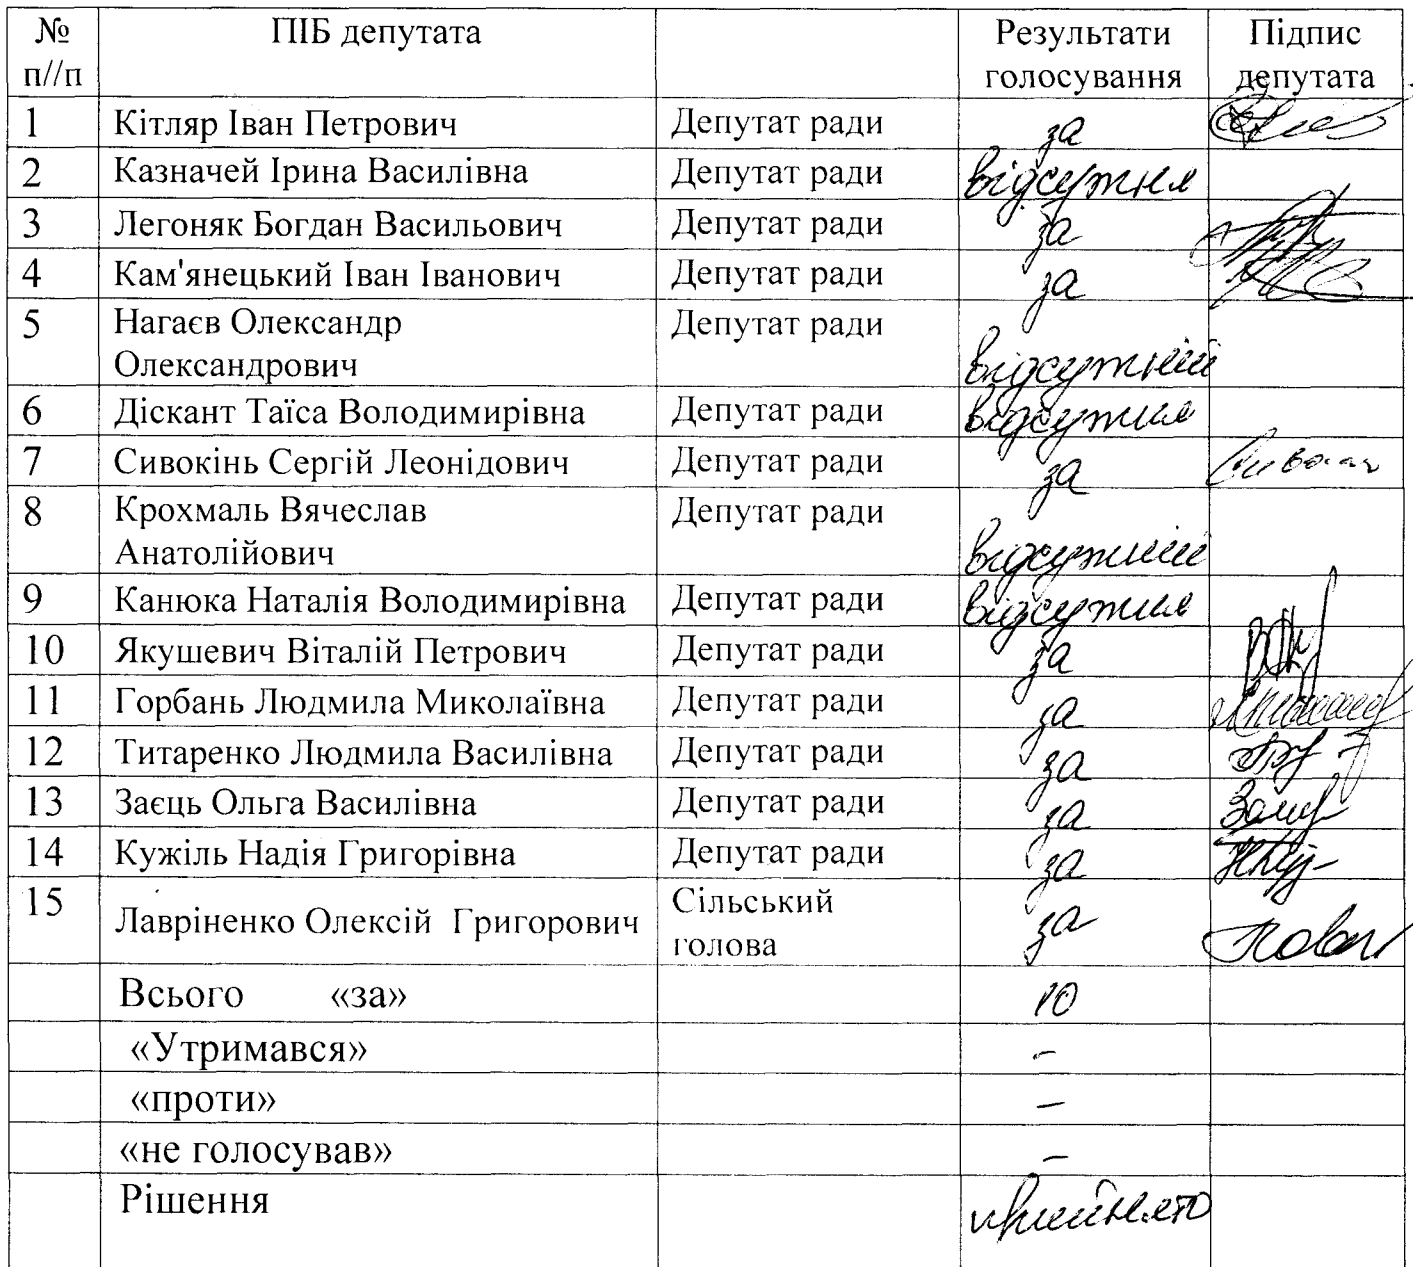 № ПІБ депутата Результати Підпис
п//п голосування депутата
1 Кітляр Іван Петрович Депутат ради за
2 Казначей Ірина Василівна Депутат ради відсутня
3 Легоняк Богдан Васильович Депутат ради за
4 Кам'янецький Іван Іванович Депутат ради за
5 Нагаєв Олександр Депутат ради
Олександрович відсутній
6 Діскант Таїса Володимирівна Депутат ради відсутня
7 Сивокінь Сергій Леонідович Депутат ради за
8 Крохмаль Вячеслав Депутат ради
Анатолійович відсутній
9 Канюка Наталія Володимирівна Депутат ради відсутня
10 Якушевич Віталій Петрович Депутат ради за
11 Горбань Людмила Миколаївна Депутат ради за
12 Титаренко Людмила Василівна Депутат ради за
13 Заєць Ольга Василівна Депутат ради за
14 Кужіль Надія Григорівна Депутат ради за
15 Лавріненко Олексій Григорович Сільський за
голова
Всього «за» 10
«Утримався» –
«проти» –
«не голосував» –
Рішення прийнято